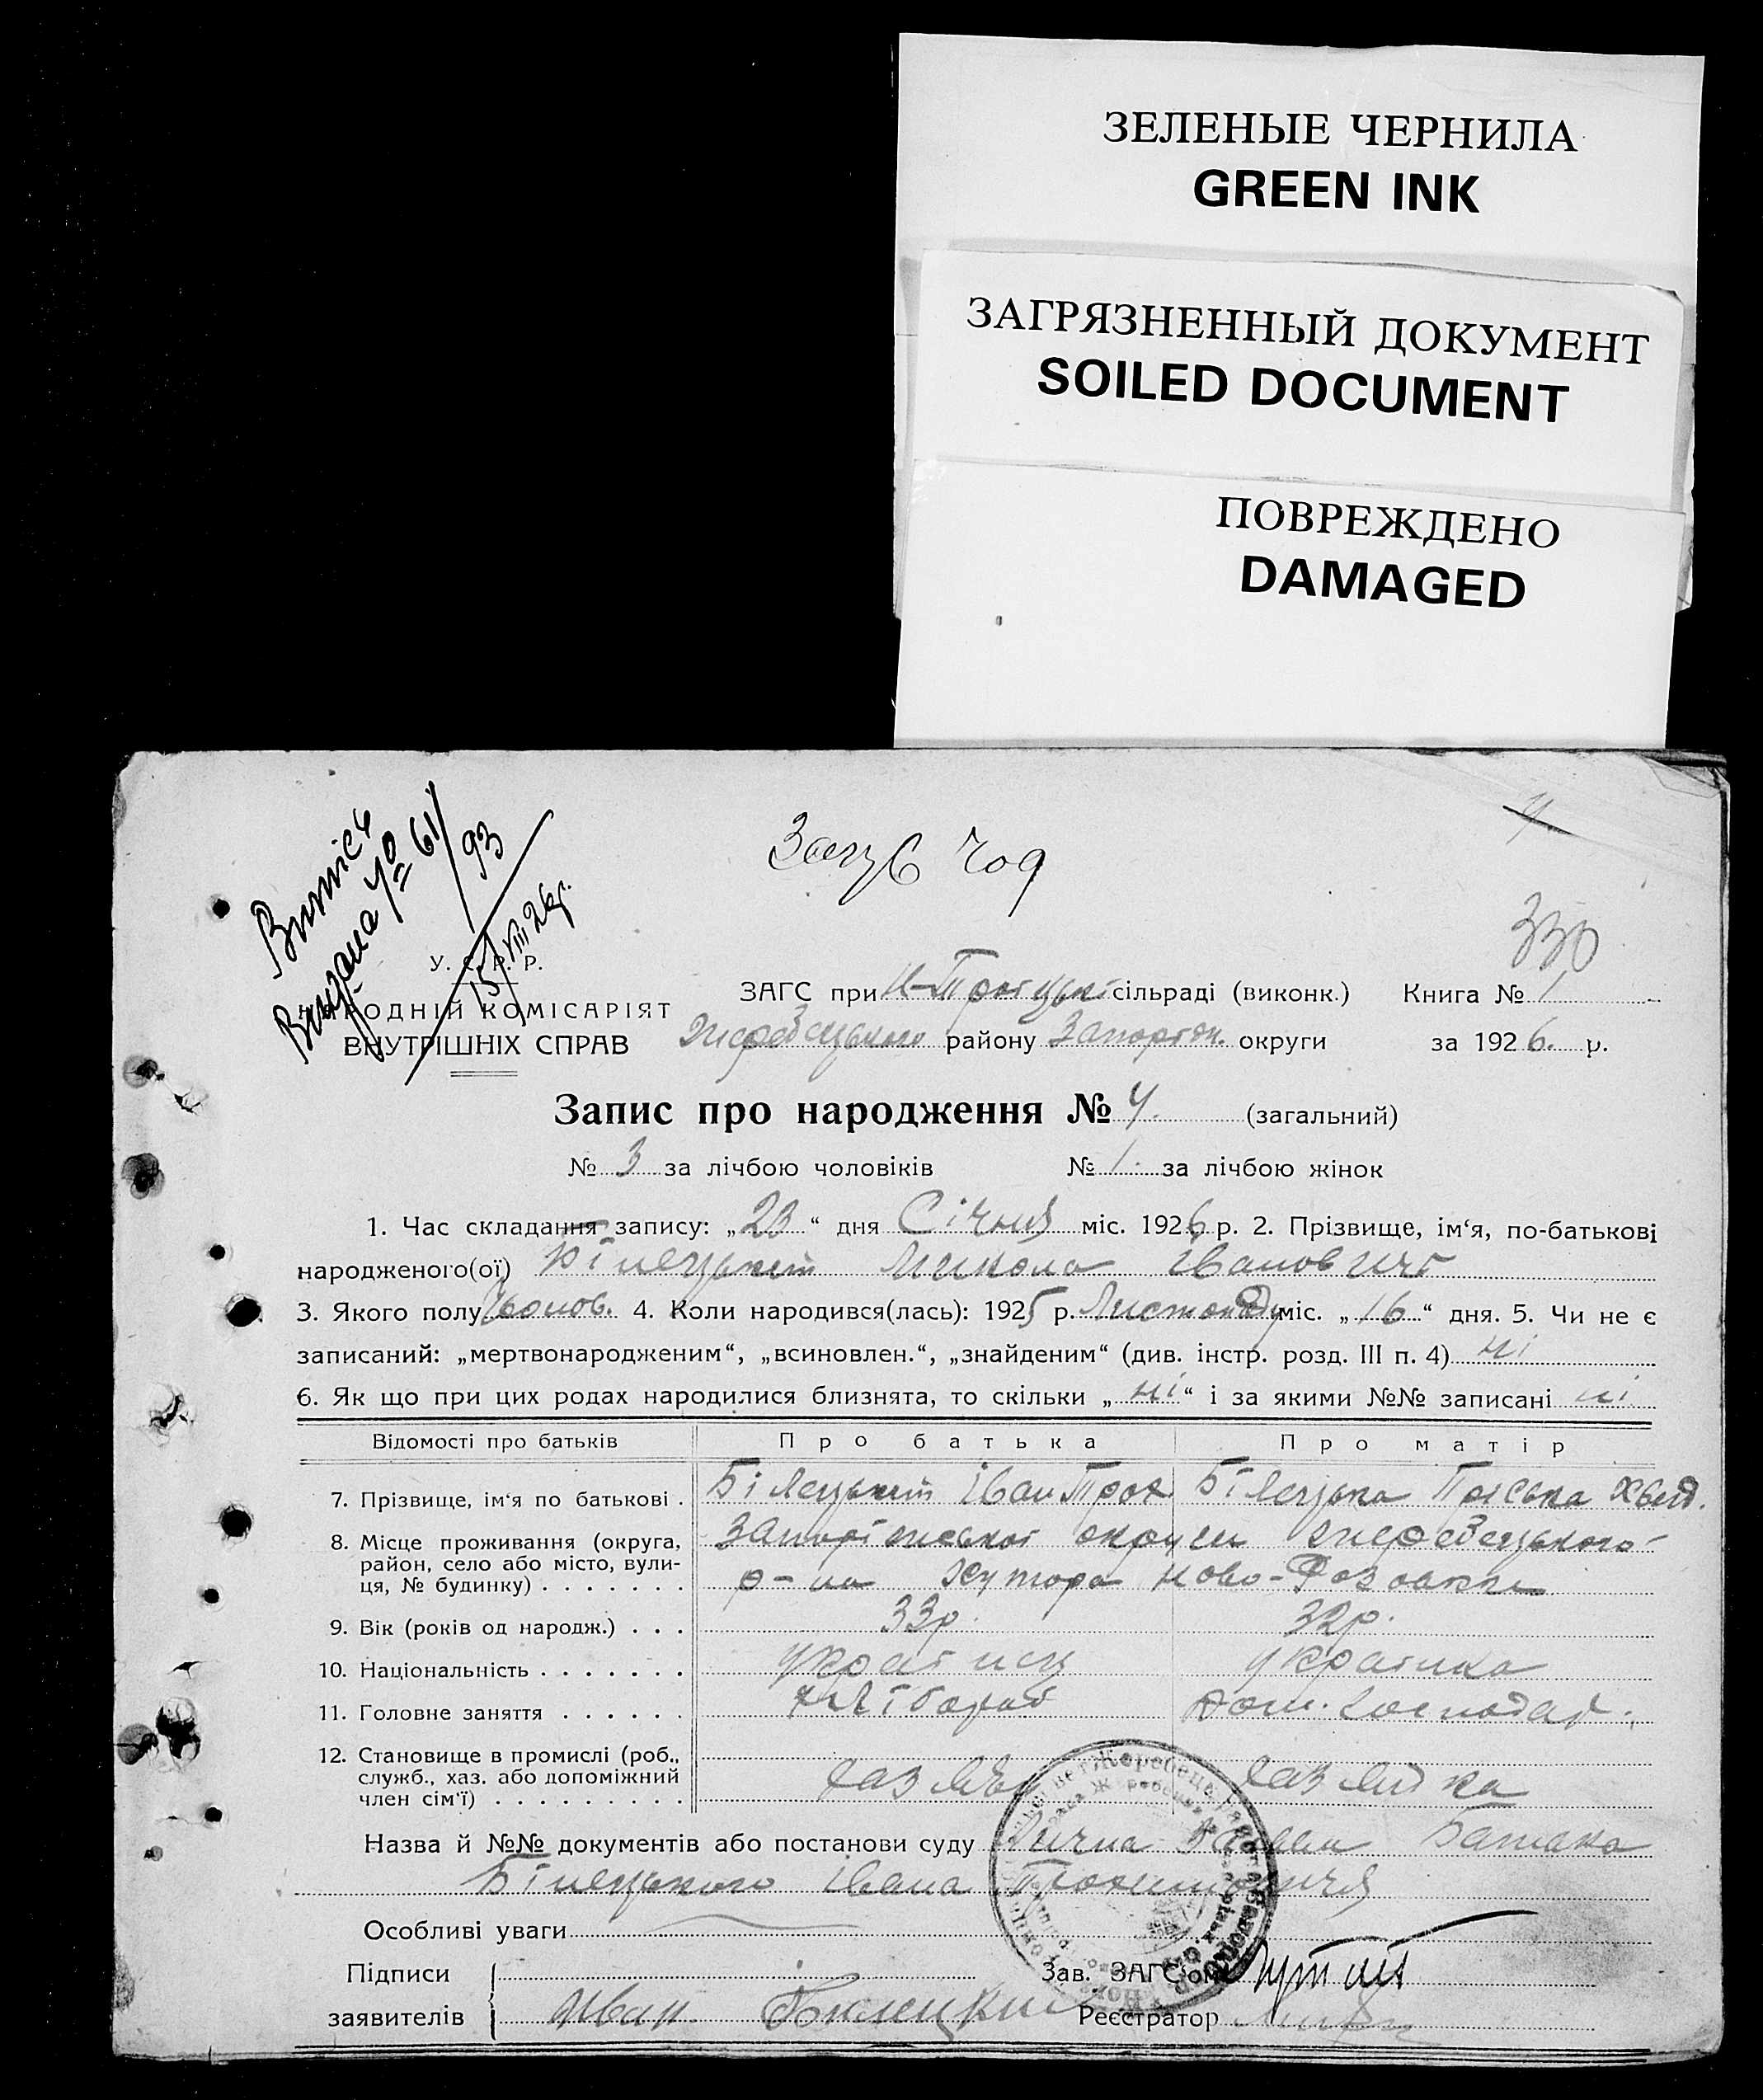 ЗЕЛЕНЫЕ ЧЕРНИЛА
GREEN INK
ЗАГРЯЗНЕННЫЙ ДОКУМЕНТ
SOILED DOCUMENT
ПОВРЕЖДЕНО
DAMAGED
Витпісь
61/93
15/VIII 26р.
330
У. С. Р. Р.
РОДНІЙ КОМІСАРІЯТ
ВНУТРІШНІХ СПРАВ
ЗАГС при Н-Троїцькі сільраді (виконк.) Книга № 1
Жеребецького району Запоріж. округи за 1926. р.
Запис про народження № 4. (загальний)
№ 3 за лічбою чоловіків № 1. за лічбою жінок
1. Час складання запису: „23“ дня Січня міс. 1926 р. 2. Прізвище, ім‘я, по-батькові
народженого(ої) Білецький Микола Іванович
3. Якого полу Чолов. 4. Коли народився(лась): 1925 р. Листопаду міс. „16“ дня. 5. Чи не є
записаний: „мертвонародженим“, „всиновлен.“, „знайденим“ (див. інстр. розд. III п. 4) ні
6. Як що при цих родах народилися близнята, то скільки „ні“ і за якими №№ записані ні
Відомості про батьків Про батька Про матір
7. Прізвище, ім‘я по батькові . Білецький Іван Прох Білецька Пріська Хвед.
8. Місце проживання (округа, район, село або місто, вулиця, № будинку) . . . . . . . Запоріжської округи Жеребецького
р-на Хутора Ново-
9. Вік (років од народж.) . . . 33р. 32р.
10. Національність . . . . . . . Українец Українка
11. Головне заняття . . . . . . Хлібороб Дом. господар.
12. Становище в промислі (роб., служб., хаз. або допоміжний член сім‘ї) . . . . . . . . . хазяїн хазяйка
Назва й №№ документів або постанови суду Лична Батька
Білецького Івана
Особливі уваги
Підписи Зав. ЗАГС‘ом
заявителів Иван Билецкий Реєстратор